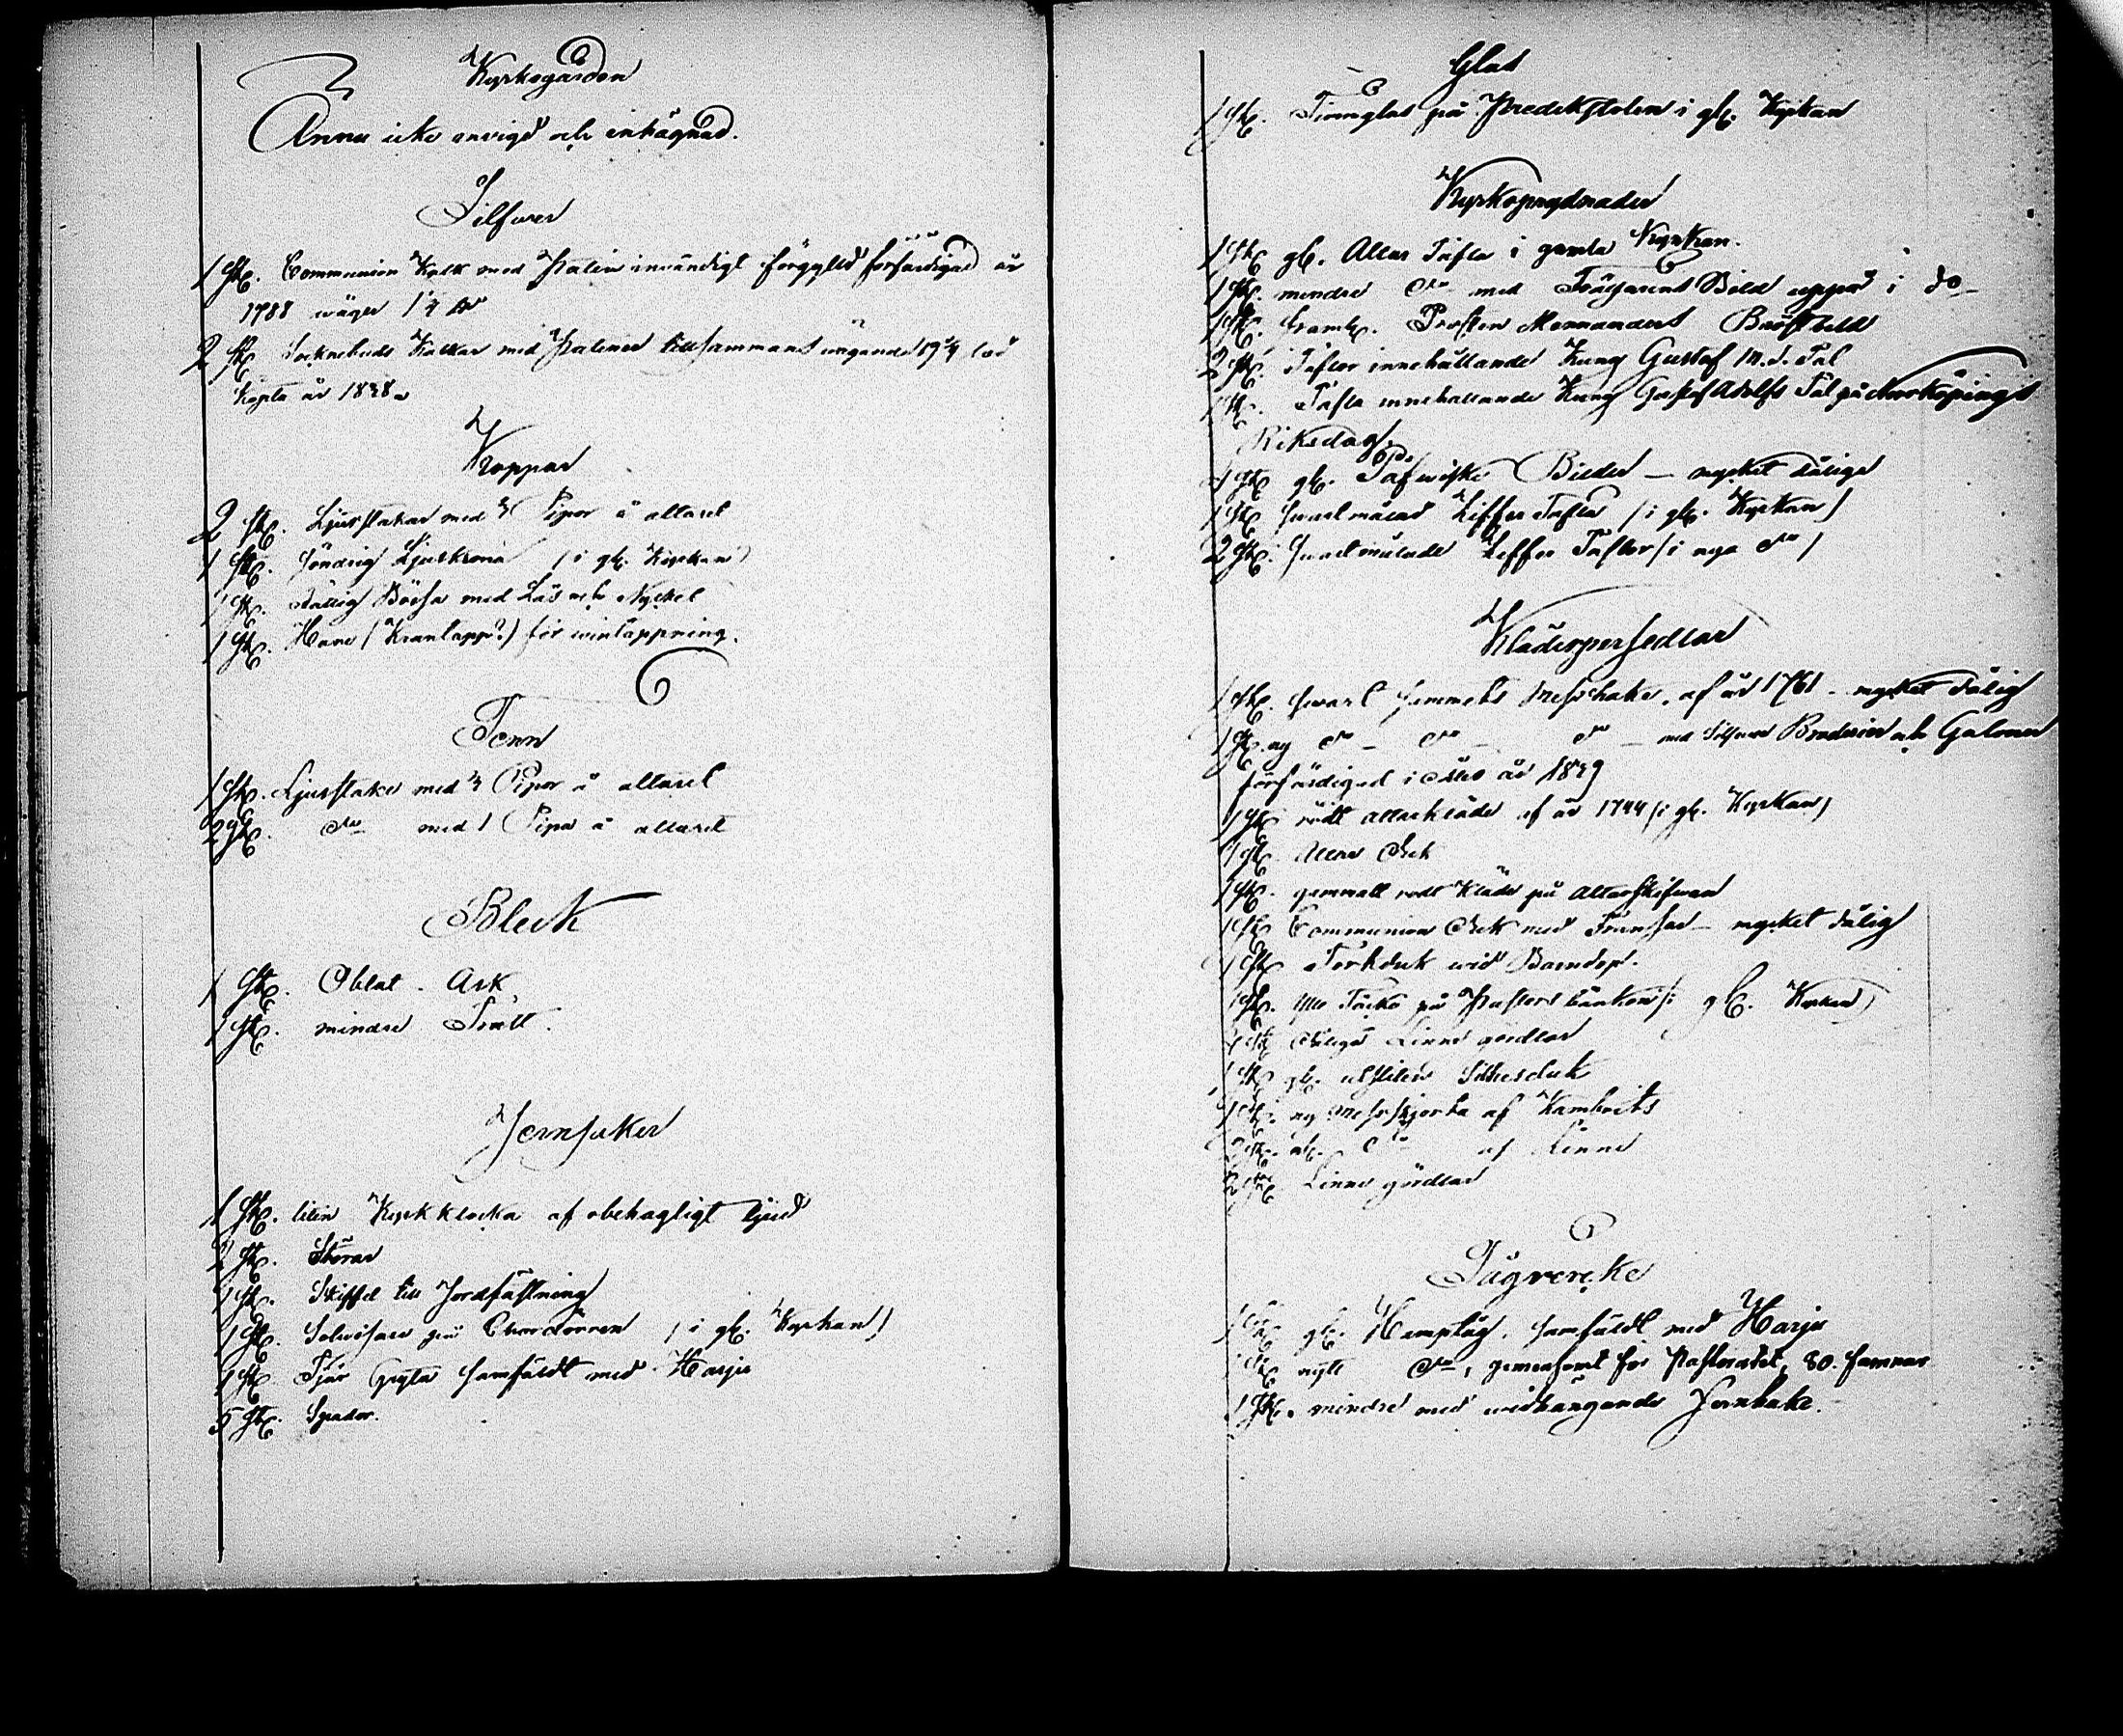 Kyrkogården
Ännu icke invigd och inhägnad.
Silfwer
1 st. Communion Kalk med Paten invändigt förgylld förfärdigad år
1788 wäger 1 1/4
2 st. Sockenbuds Kalkar med Patener tillsammans wägande 19 3/4 lod
Köpta år 1838
Koppar
2 st. Ljusstakar med 3 Pipor å altaret
1 st. söndrig Ljuskrona (i gl. Kyrkan)
1 st. dålig Bössa med Lås och Nyckel
1 st. Hane (Krantapp?) för wintappning.
Tenn
1 st. Ljusstake med 3 Pipor å altaret
2 st. do med 1 Pipa å altaret
Bleck
1 st. Oblat-Ask
1 st. mindre Tratt.
Jernsaker
1 st. liten Kyrkklocka af obehagligt ljud
2 st. Störar
1 st. Skiffel till Jordfästning
1 st. Solwisare på Chordörren (i gl. Kyrkan)
1 st. Tjär Gryta samfäldt med Harju
5 st. Spador.
Glas
1 st. Timglas på Predikstolen i gl. Kyrkan
Kyrkoprydnader
1 st. gl. Altar Tafla i gamla Kyrkan.
1 st. mindre do med Frälsarens Bild uppå i do
1 st. framl. Prosten Mennanders Bröstbild
2 st. Taflor innehållande Kung Gustaf III.s. Tal
1 st. Tafla innehållande Kung Gustaf Adolfs Tal på Norrköpings
Riksdag.
st. gl. Påfwiska Bilder - mycket dåliga
1 st. swart målad Ziffer Tafla (i gl. Kyrkan)
2 st. swart målade Ziffer Taflor (i nya do)
Klädespersedlar
1 st. swart sammets Messhake, af år 1761 - mycket dålig
1 st. ny do - do - do - med Silfwer Broderier och Galoner
förfärdigad i år 1839
1 st. rödt altarkläde af år 1744 (i gl. Kyrkan)
1 st. Altar Duk
1 st. gammalt rödt Kläde på Altarskifwan
1 st. Communion Duk med Fransar - mycket dålig
1 st. Torkduk wid Barndop.
1 st. Ylle Täcke på Pastors bänken (i gl. Kyrkan)
st. dåliga Linne gördlar
1 st. gl. utsliten Silkesduk
1 st. ny Messskjorta af Kambriks
2 st. gl. do af Linne
2 st. Linne gördlar
Tågwerke
1 st. gl. Hamptåg, samfäldt med Harju
1 st. nytt do, gemensamt för Pastoratet, 80. famnar
1 st. mindre med widhängande Jernhake.